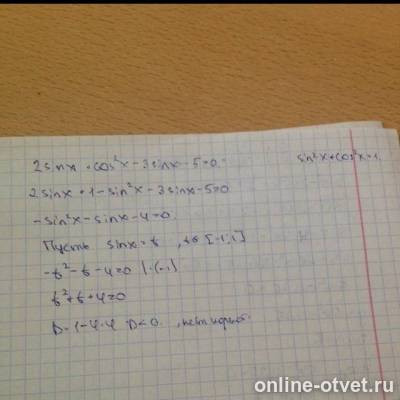 2sinx + cos²x - 3sinx - 5 = 0. sin²x + cos²x = 1.
2sinx + 1 - sin²x - 3sinx - 5 = 0
-sin²x - sinx - 4 = 0
Пусть sinx = t, t∈[-1;1]
-t² - t - 4 = 0 |·(-1)
t² + t + 4 = 0
D = 1 - 4·4 D < 0. , нет корней
online-otvet.ru